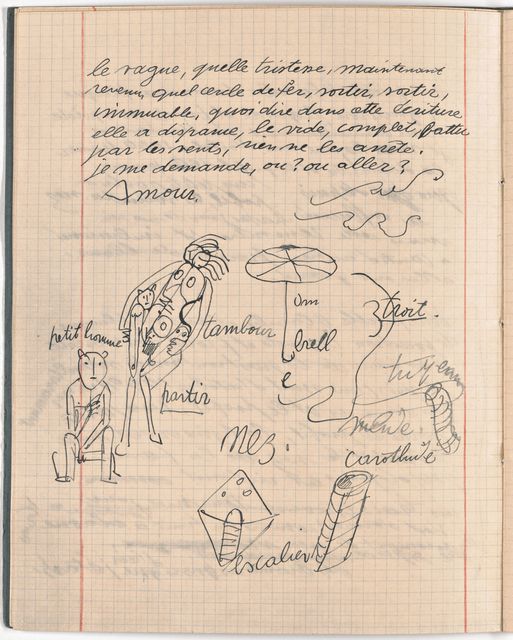 le vague, quelle tristesse, maintenant
revenu, quel cercle de fer, sortir, sortir,
immuable, quoi dire dans cette écriture
elle a disparue, le vide, complet, battu
par les vents, rien ne les arrête.
je me demande, ou? ou aller?
Amour.
om
troit.
petit homme
tambour
brell
e
partir
nez.
escalier